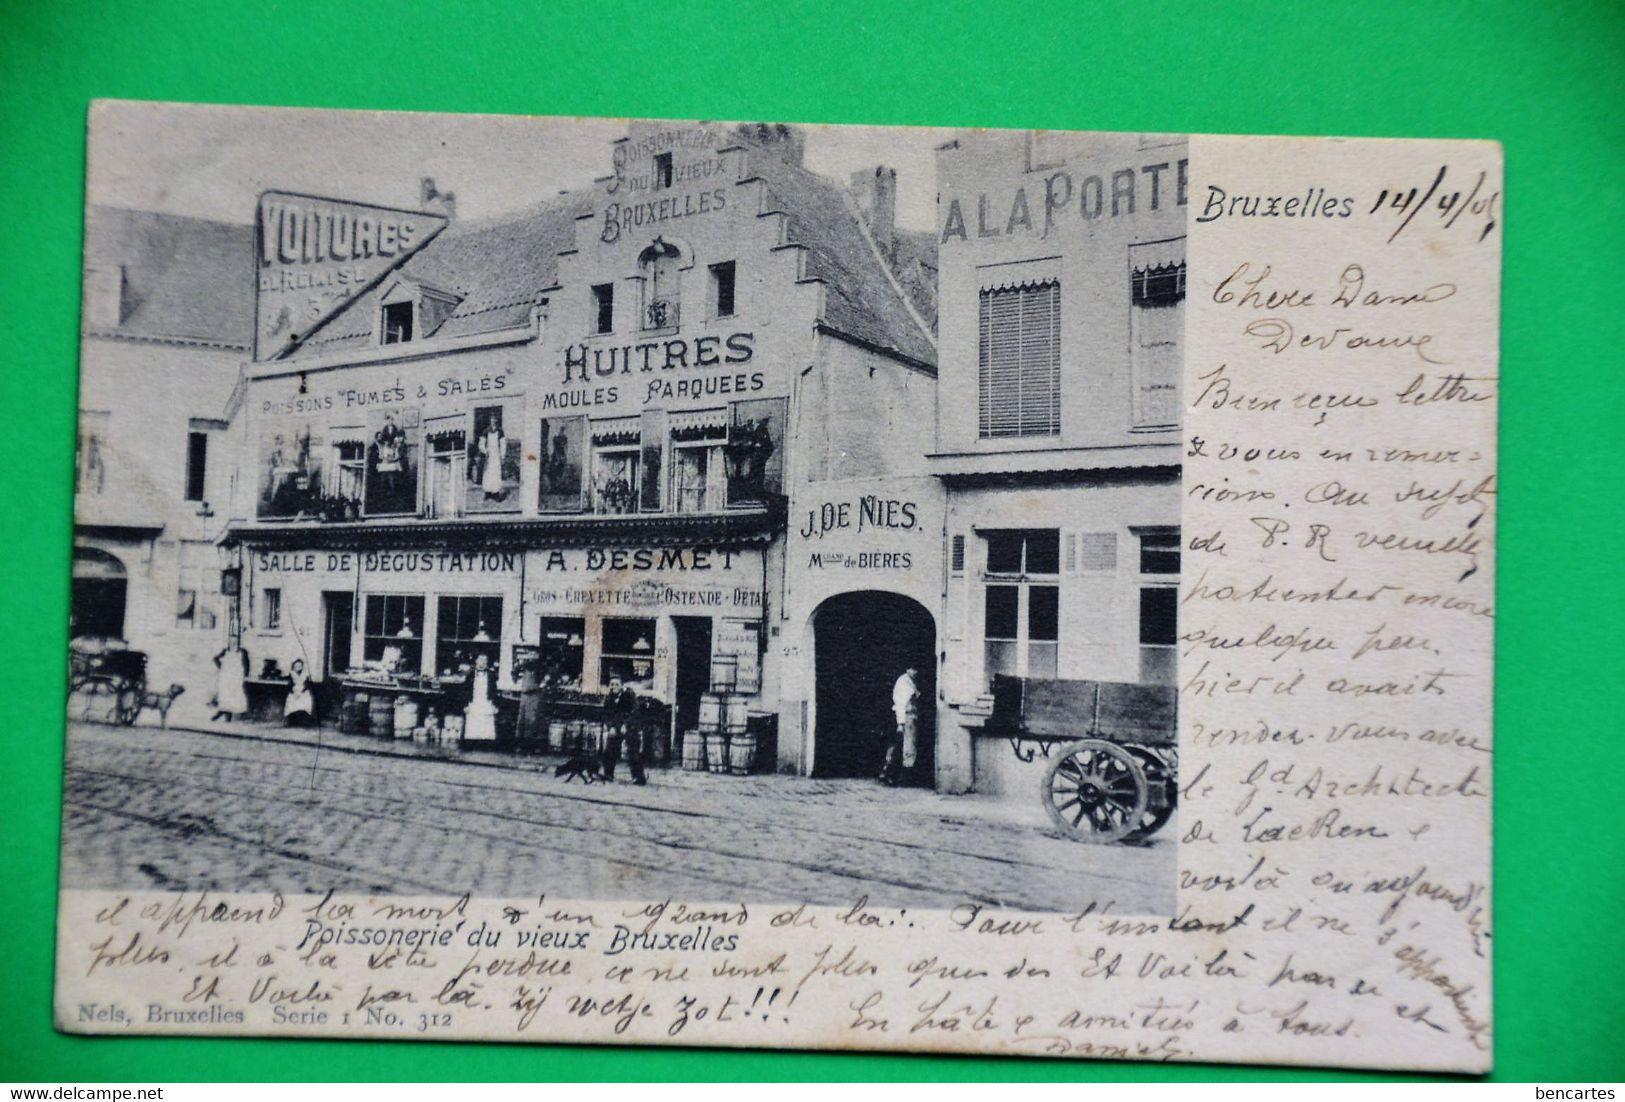 POISSONNERIE
DU VIEUX
BRUXELLES
VOITURES
DE REMISE
A LA PORTE
HUITRES
MOULES PARQUEES
POISSONS FUMÉS & SALÉS
J. DE NIES.
MCHAND de BIÈRES
SALLE DE DÉGUSTATION
A. DESMET
GROS - CREVETTE D'OSTENDE - DÉTAIL
23
Bruxelles 14/4/01
Chere Dame
Devauve
Bien reçu lettre
& vous en remer-
cions. Au sujet
de P. R veuillez
patienter encore
quelque peu.
hier il avait
rendez-vous avec
le Gd Architecte
de LaeKen &
voilà qu'aujourd'hui
il apprend la mort d'un grand de la:. Pour l'instant il ne s'appartient
Poissonerie du vieux Bruxelles
plus, il a la tête perdue & ne sont plus que des Et Voilà par ci et
Et Voilà par là. Zij wetje Zot!!! En hâte & amitiés à tous.
Nels, Bruxelles Serie 1 No. 312
Daniel
bencartes